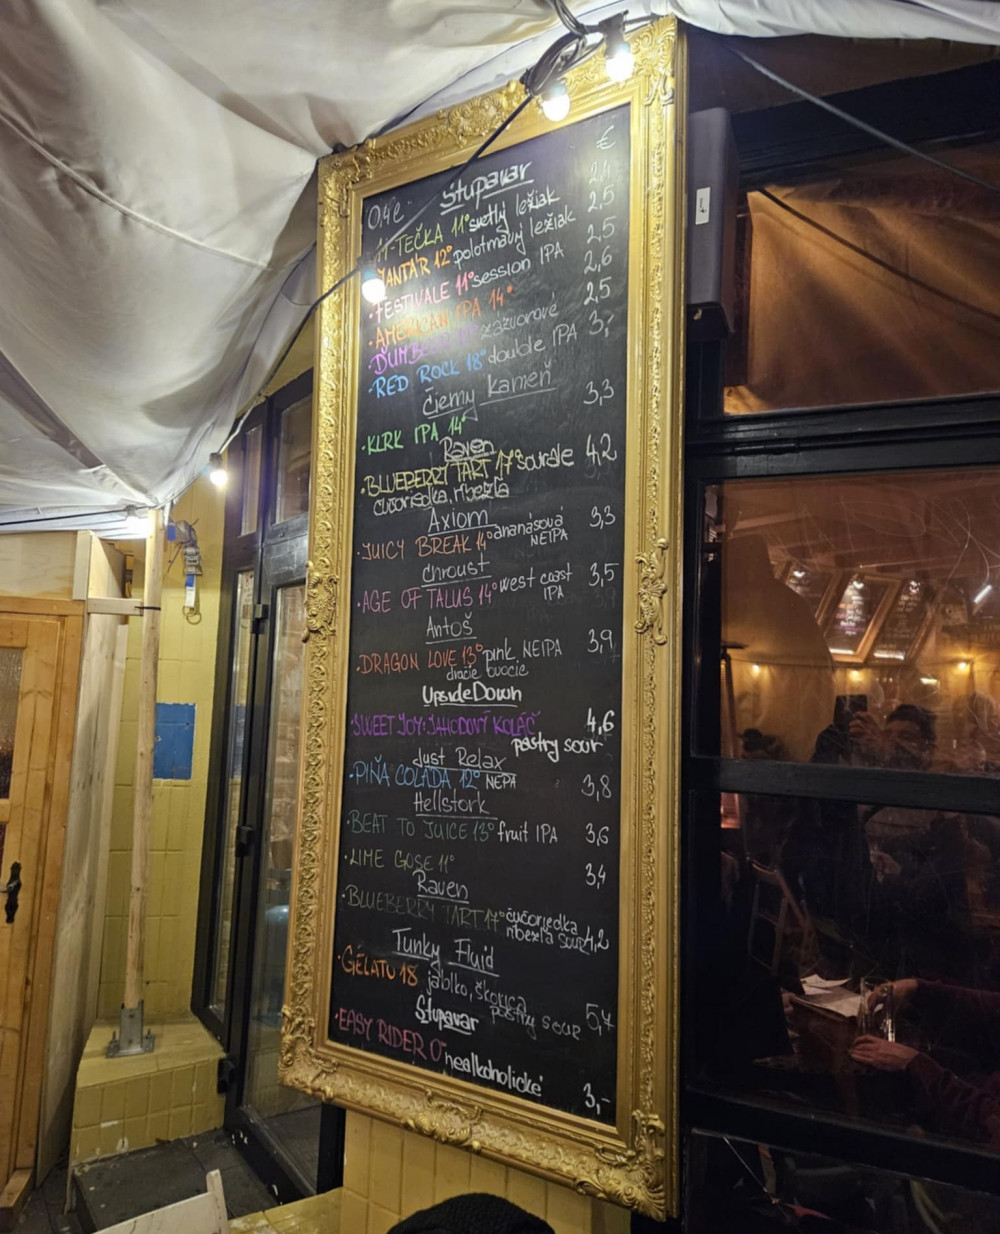 €
0,4l Stupavar
M-TEČKA 11° svetlý ležiak 2,4
JANTÁR 12° polotmavý ležiak 2,5
·FESTIVALE 11° session IPA 2,5
·AMERICAN IPA 14° 2,6
zázvorové 2,5
·RED ROCK 18° double IPA 3,-
Čierny Kameň
·KLRK IPA 14° 3,3
Raven
·BLUEBERRY TART 17° sour ale 4,2
čučoriedka, ríbezľa
Axiom
·JUICY BREAK 14° ananásová NEIPA 3,3
Chroust
·AGE OF TALUS 14° west coast IPA 3,5
Antoš
·DRAGON LOVE 13° pink NEIPA 3,9
dračie ovocie
UpsideDown
·SWEET JOY: JAHODOVÝ KOLÁČ 4,6
pastry sour
Just Relax
·PIŇA COLADA 12° NEPA 3,8
Hellstork
·BEAT TO JUICE 13° fruit IPA 3,6
·LIME GOSE 11° 3,4
Raven
·BLUEBERRY TART 17° čučoriedka
ríbezľa sour 4,2
Funky Fluid
·GELATO 18 jablko, škorica
pastry sour 5,7
Stupavar
·EASY RIDER 0° nealkoholické 3,-